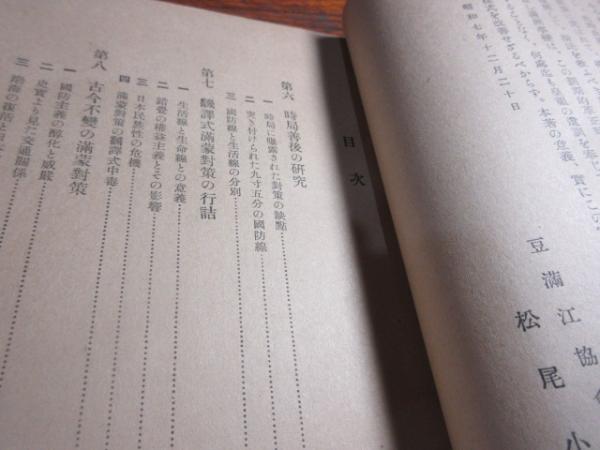 式を改善せざるべからず。本著の意義、實にこの
昭和七年十二月二十日
豆満江協會
松尾小
目次
第六 時局善後の研究
一 時局に曝露された對策の缺點
二 突き付けられた九寸五分の國防線
三 國防線と生活線の分別
第七 飜譯式滿蒙對策の行詰
一 生活線と生命線との意義
二 錯覺の權益主義とその影響
三 日本民族性の危機
四 滿蒙對策の飜譯式中毒
第八 古今不變の滿蒙對策
一 國防主義の醇化と威嚴
二 史實より見た交通關係
三 渤海の復活と